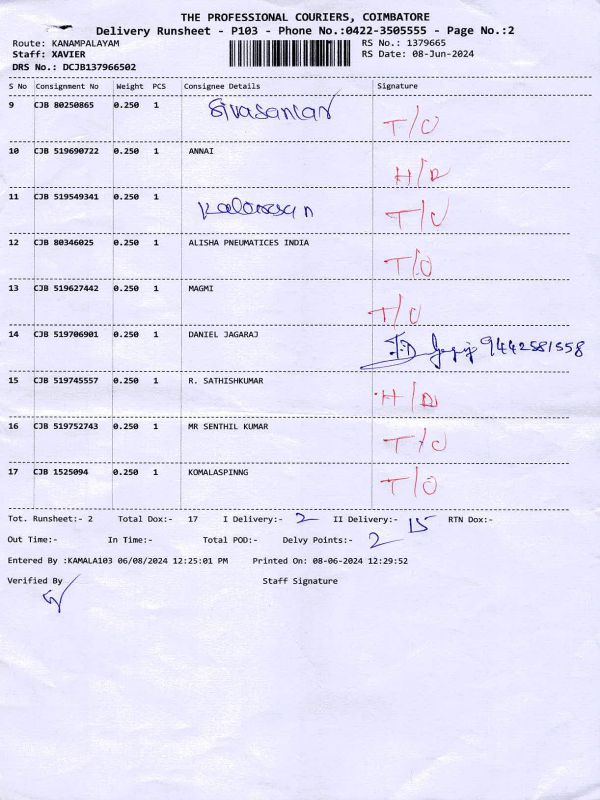 THE PROFESSIONAL COURIERS, COIMBATORE
Delivery Runsheet - P103 - Phone No.:0422-3505555 - Page No.:2
Route: KANAMPALAYAM RS No.: 1379665
Staff: XAVIER RS Date: 08-Jun-2024
DRS No.: DCJB137966502
S No Consignment No Weight PCS Consignee Details Signature
9 CJB 80250865 0.250 1 Sivasankar T/O
10 CJB 519690722 0.250 1 ANNAI H/D
11 CJB 519549341 0.250 1 T/O
12 CJB 80346025 0.250 1 ALISHA PNEUMATICES INDIA T/O
13 CJB 519627442 0.250 1 MAGMI T/O
14 CJB 519706901 0.250 1 DANIEL JAGARAJ 9442581558
15 CJB 519745557 0.250 1 R. SATHISHKUMAR H/D
16 CJB 519752743 0.250 1 MR SENTHIL KUMAR T/O
17 CJB 1525094 0.250 1 KOMALASPINNG T/O
Tot. Runsheet:- 2 Total Dox:- 17 I Delivery:- 2 II Delivery:- 15 RTN Dox:-
Out Time:- In Time:- Total POD:- Delvy Points:- 2
Entered By :KAMALA103 06/08/2024 12:25:01 PM Printed On: 08-06-2024 12:29:52
Verified By Staff Signature